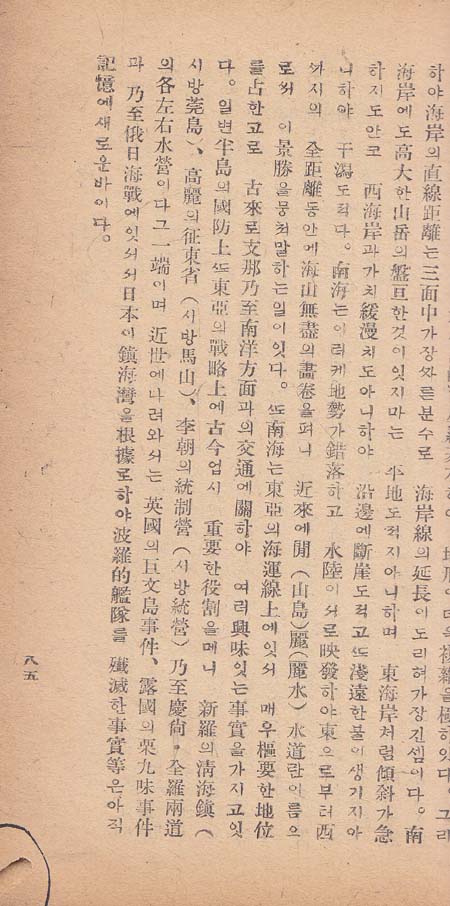 하야海岸의直線距離는三面中가장짜른분수로 海岸線의延長이도리혀가장긴셈이다。南
海岸에도高大한山岳의盤亘한것이잇지마는 平地도적지아니하며 東海岸처럼傾斜가急
하지도안코 西海岸과가치緩漫치도아니하야 沿邊에斷崖도적고ᄯᅩ淺遠한불이생기지아
니하야 干潟도적다。南海는이러케地勢가錯落하고 水陸이서로映發하야東으로부터西
ᄭᅡ지의 全距離동안에海山無盡의畵卷을펴니 近來에閒(山島)麗(麗水)水道란이름으
로써 이景勝을뭉쳐말하는일이잇다。ᄯᅩ南海는東亞의海運線上에잇서 매우樞要한地位
를占한고로 古來로支那乃至南洋方面과의交通에關하야 여러興味잇는事實을가지고잇
다。일변半島의國防上ᄯᅩ東亞의戰略上에古今업시 重要한役割을메니 新羅의淸海鎭(
시방莞島)、高麗의征東省(시방馬山)、李朝의統制營(시방統營)乃至慶尙·全羅兩道
의各左右水營이다그一端이며 近世에나려와서는 英國의巨文島事件、露國의栗九味事件
과 乃至俄日海戰에잇서서日本이鎭海灣을根據로하야波羅的艦隊를 殲滅한事實等은아직
記憶에새로운바이다。
八五